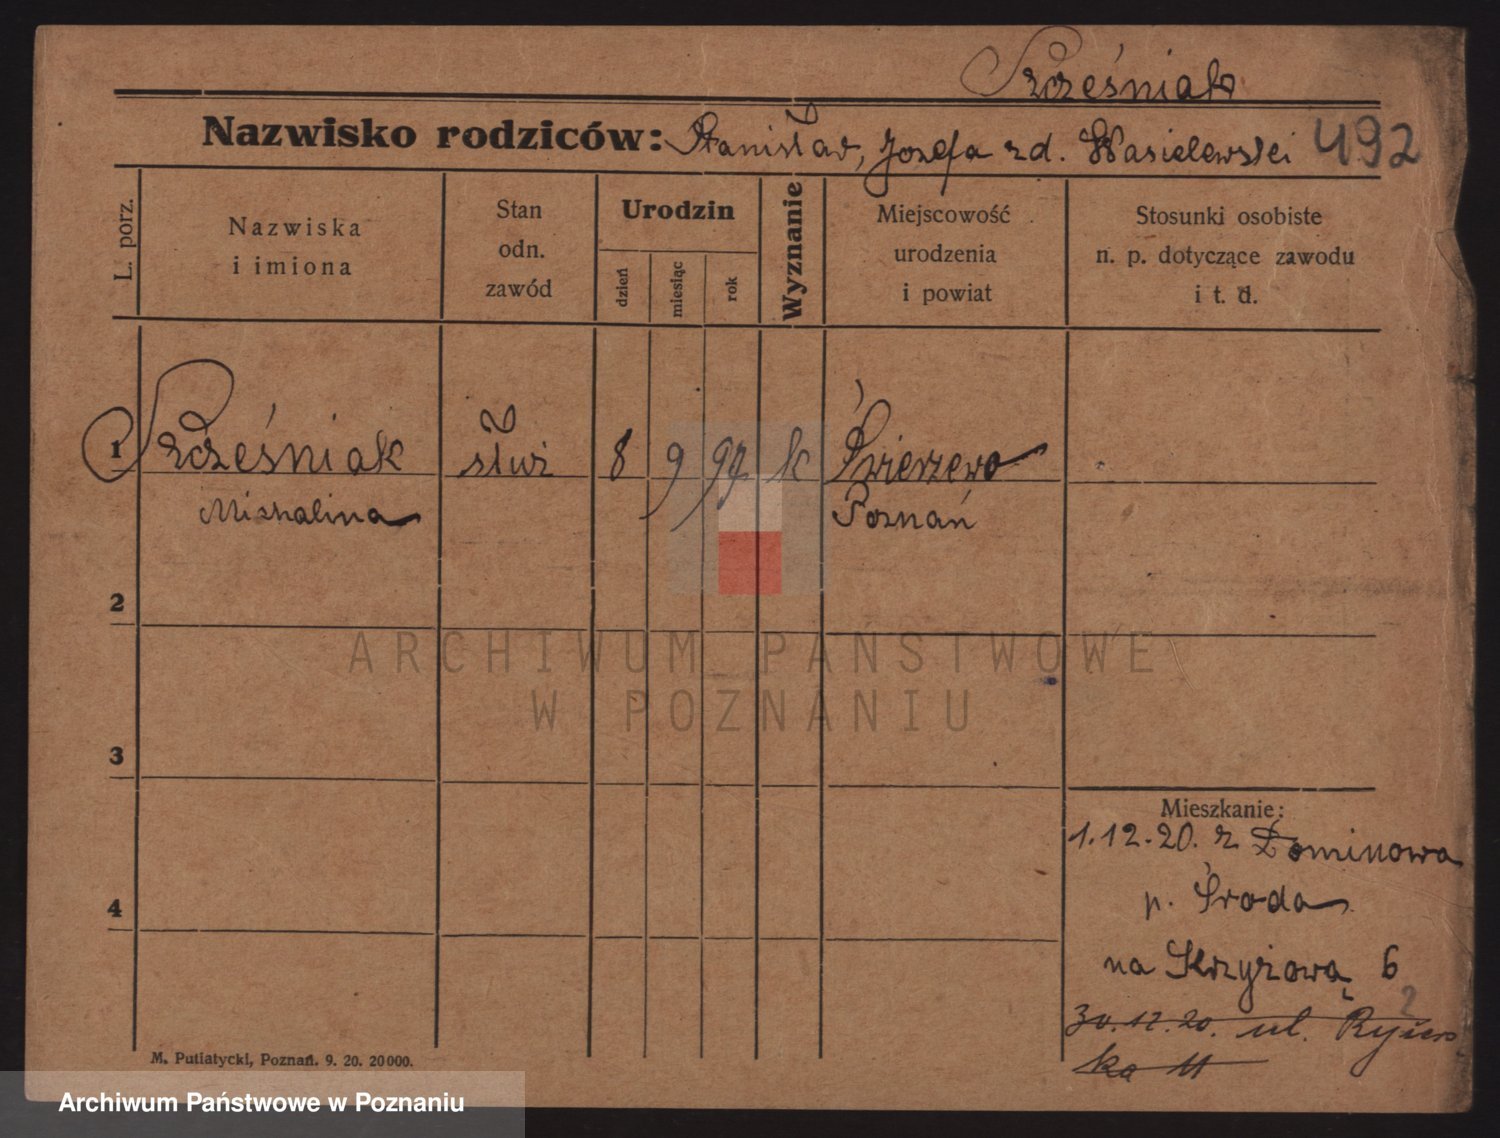 Szcześniak
Nazwisko rodziców: Stanisław, Jozefa zd. Wasielewski 492
L. porz.
Nazwiska
i imiona
Stan
odn.
zawód
Urodzin
dzień
miesiąc
rok
Wyznanie
Miejscowość
urodzenia
i powiat
Stosunki osobiste
n. p. dotyczące zawodu
i t. d.
1 Szcześniak służ 8 9 99 k Świerzewo
Michalina Poznań
2
ARCHIWUM PAŃSTWOWE
W POZNANIU
3
Mieszkanie:
1.12.20. z Dominowa
p. Środa
4
na Krzyżową 6
2
30.12.20. ul. Rycers
ka 11
M. Putiatycki, Poznań. 9. 20. 20000.
Archiwum Państwowe w Poznaniu